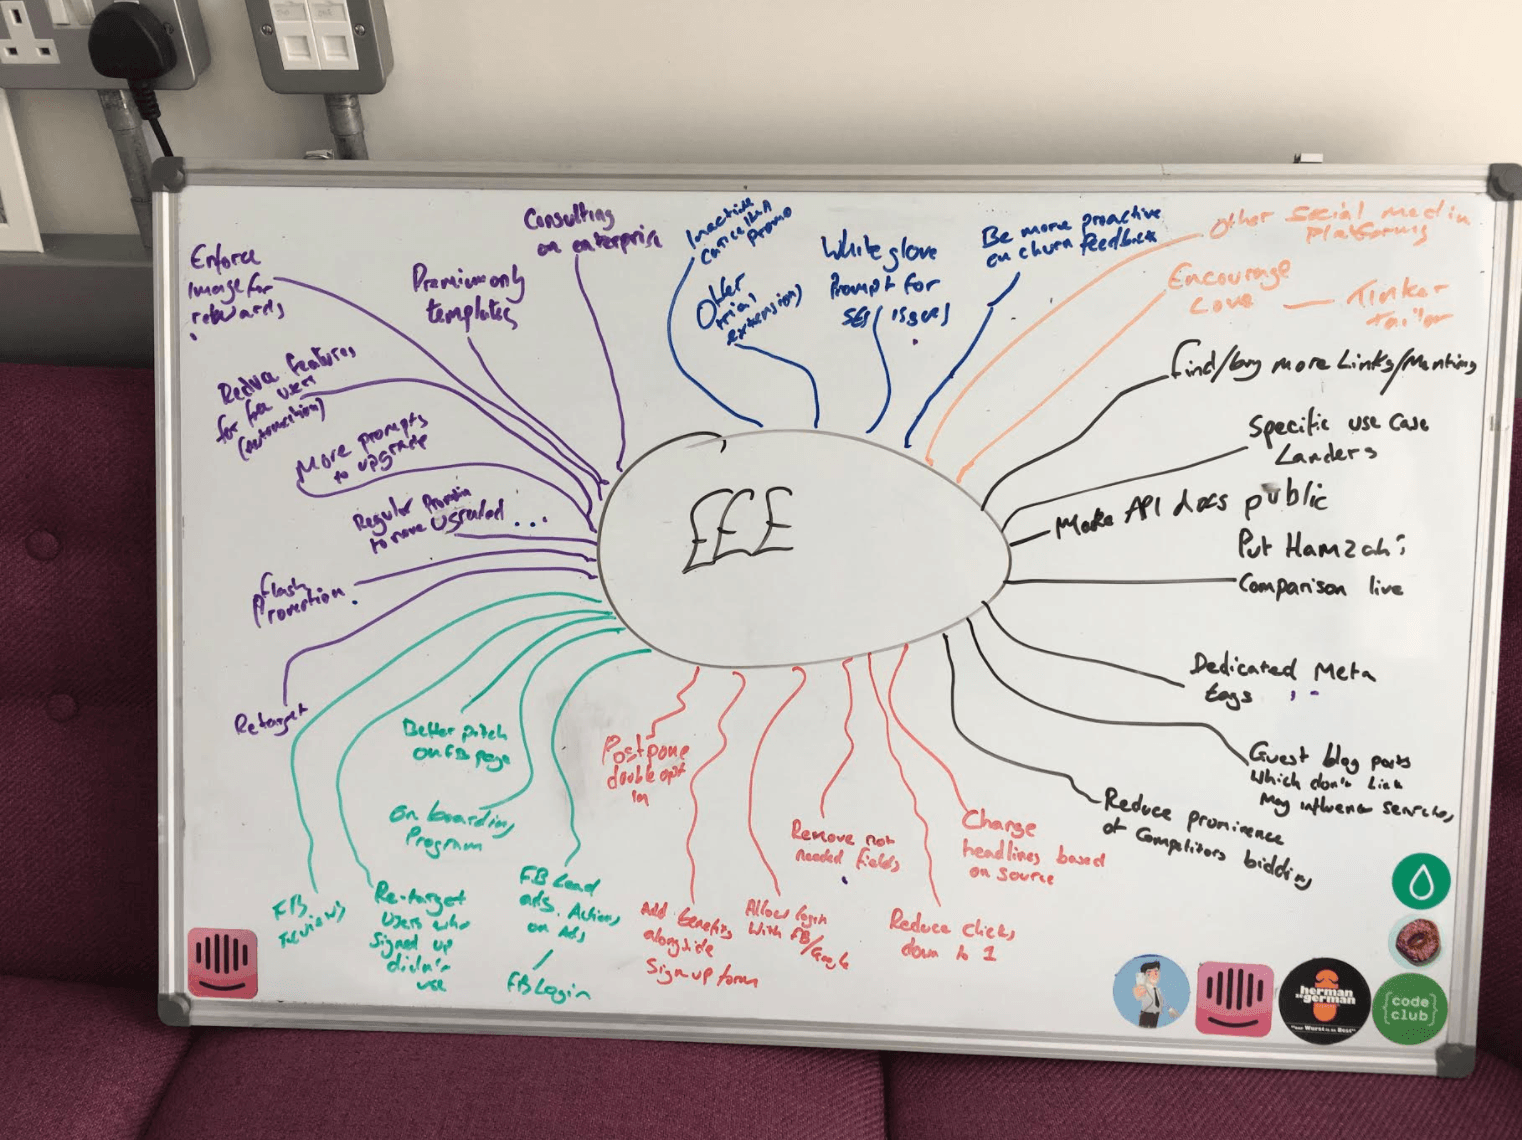 Enforce
image for
rewards
Premium only
templates
Consulting
on enterprise
Inactive
cancellation
promo
Offer
trial
extensions
White glove
Prompt for
SES/issues
Be more proactive
on churn feedback
Other Social media
Platforms
Encourage
Love — Tinker
Tailor
Find/buy more Links/Mentions
Specific use case
Landers
Make API docs public
Put Hamzah's
Comparison live
Dedicated Meta
tags
Guest blog posts
which don't link
May influence searches
Reduce prominence
of Competitors bidding
£££
Reduce features
for free users
(automation)
More prompts
to upgrade
Regular
to
Flash
Promotion
Retarget
FB
reviews
Re-target
users who
signed up
didn't
use
Better pitch
on FB page
On boarding
Program
FB Lead
ads. Actions
on Ads
/
FB Login
Postpone
double opt
in
Add benefits
alongside
Sign up form
Allow login
with FB/Google
Remove not
needed fields
Reduce clicks
down to 1
Change
headlines based
on source
herman
ze german
"our Wurst is ze Best"
{code
club}